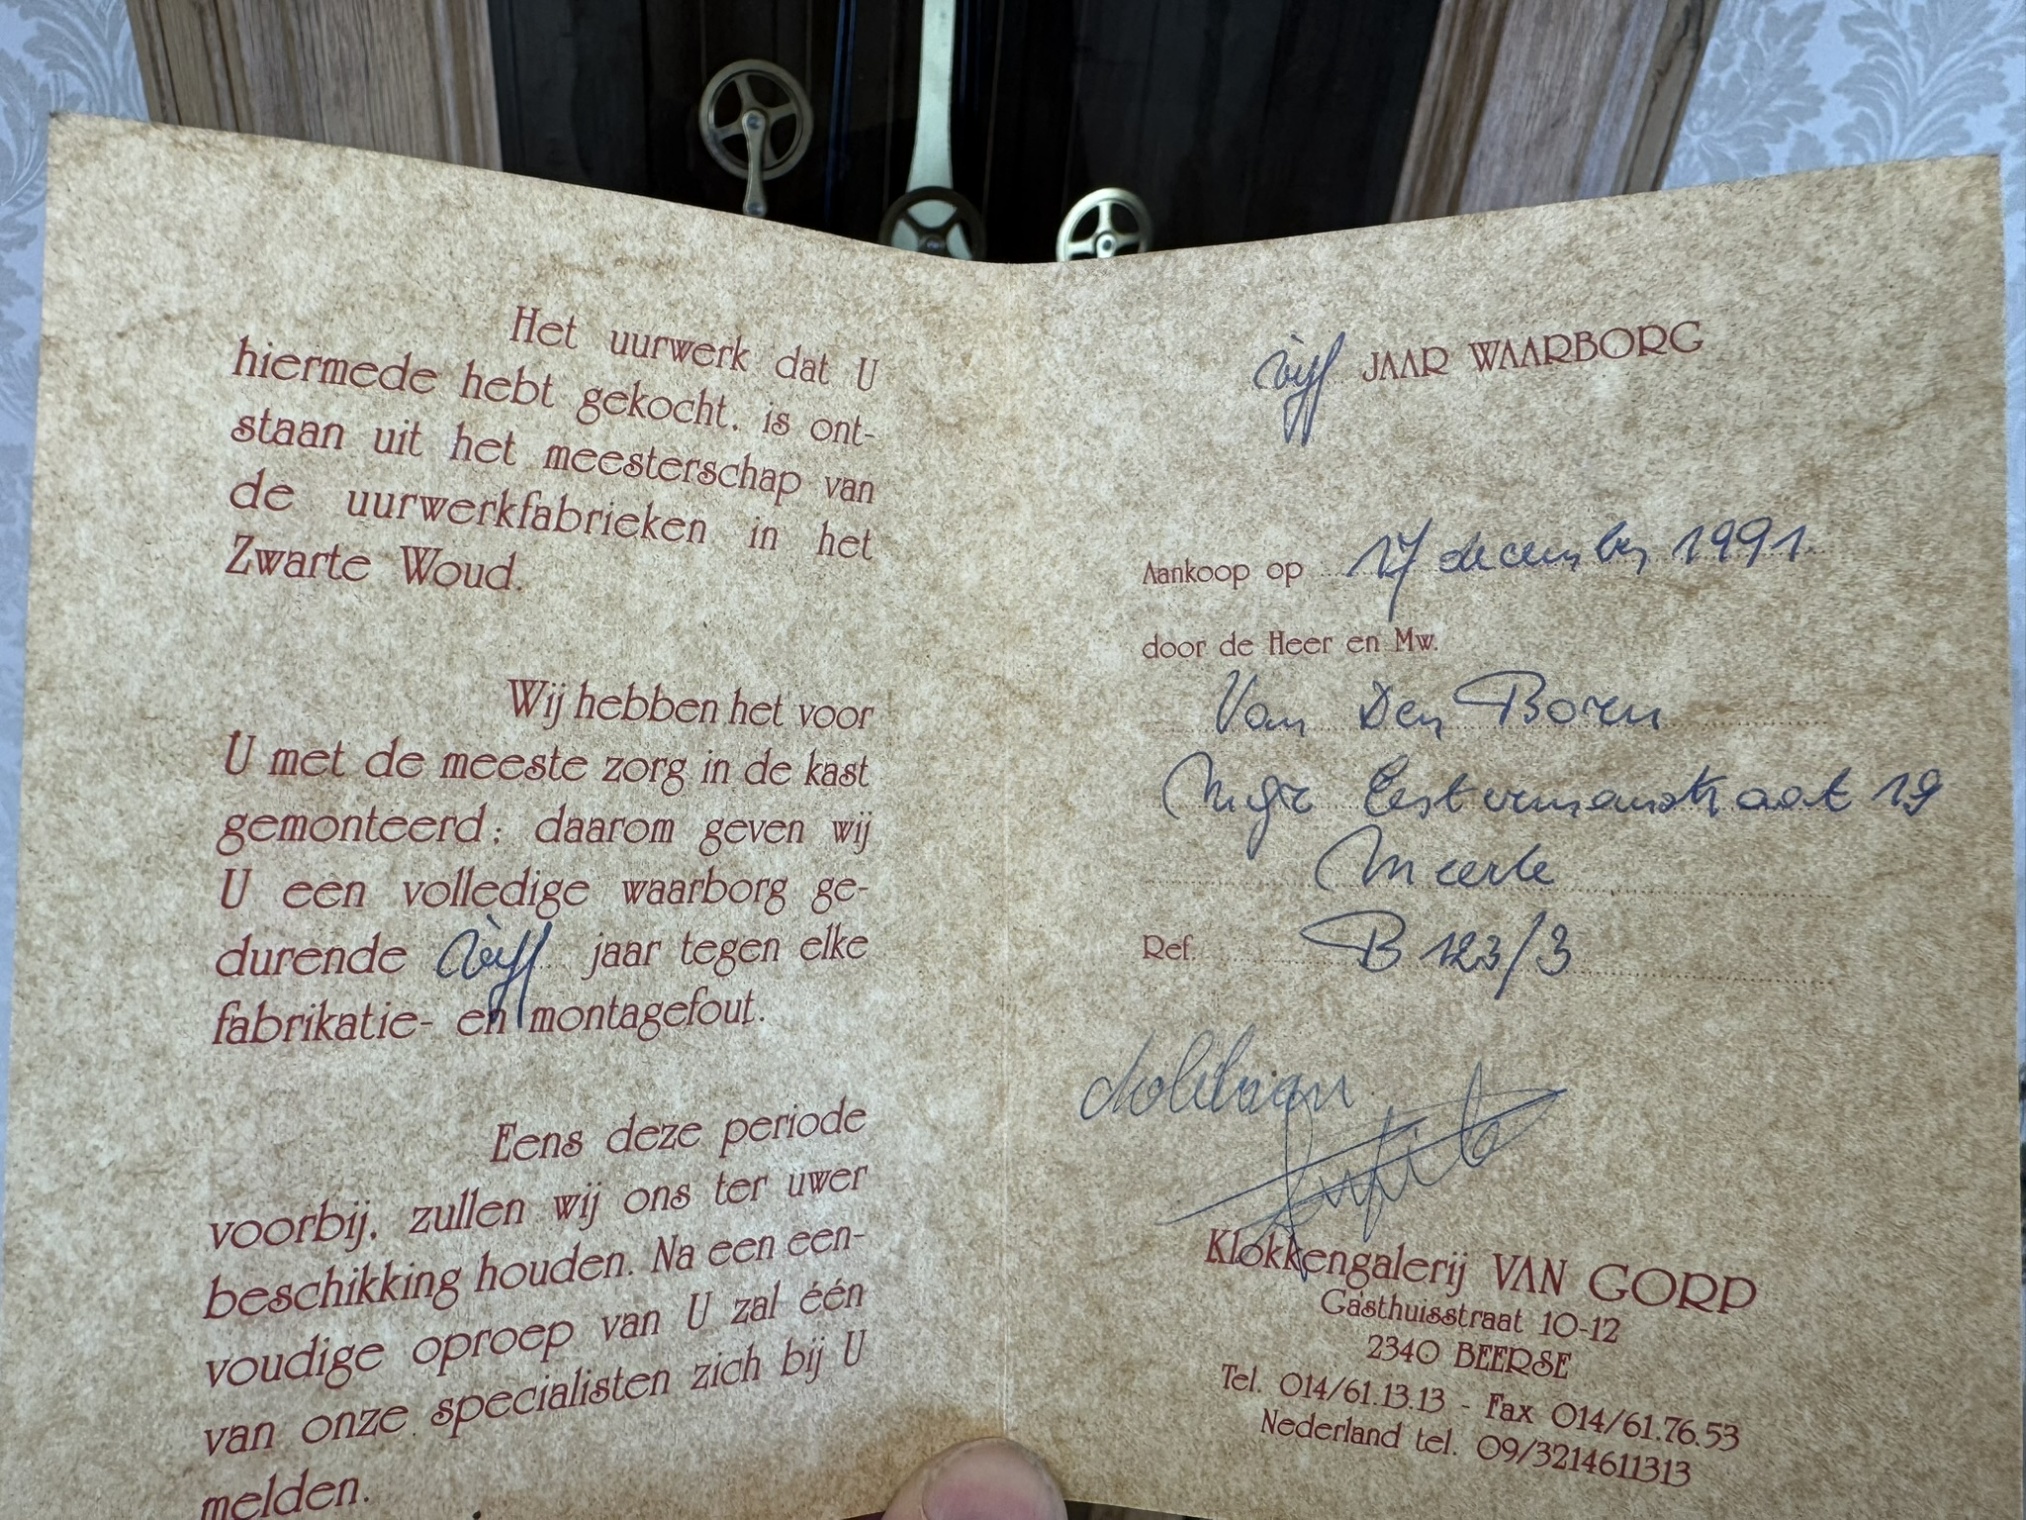 Het uurwerk dat U
hiermede hebt gekocht, is ont-
staan uit het meesterschap van
de uurwerkfabrieken in het
Zwarte Woud.
Wij hebben het voor
U met de meeste zorg in de kast
gemonteerd; daarom geven wij
U een volledige waarborg ge-
durende vijf jaar tegen elke
fabrikatie- en montagefout.
Eens deze periode
voorbij, zullen wij ons ter uwer
beschikking houden. Na een een-
voudige oproep van U zal één
van onze specialisten zich bij U
melden.
vijf JAAR WAARBORG
Aankoop op 17 december 1991
door de Heer en Mw.
Van Den Boren
Mgr 19
Meerle
Ref. B 123/3
Klokkengalerij VAN GORP
Gasthuisstraat 10-12
2340 BEERSE
Tel. 014/61.13.13 - Fax 014/61.76.53
Nederland tel. 09/3214611313